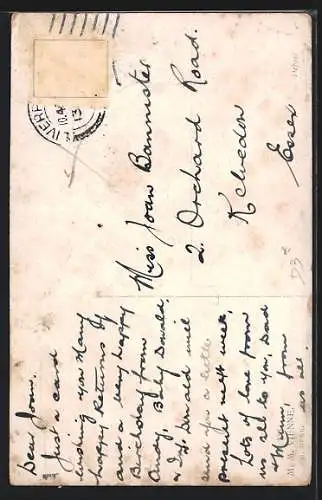 LIVERP
10.4
13
Dear Joan.
Just a card
wishing you Many
happy Returns of
and a very happy
Birthday from
Baby Donald.
& I. Donald will
send you a little
present next week,
Lots of love from
us all to you, Dad
& Mum from
us all.
Miss Joan Bannister
2. Orchard Road.
Kelvedon
Essex
M. M. VIENNE